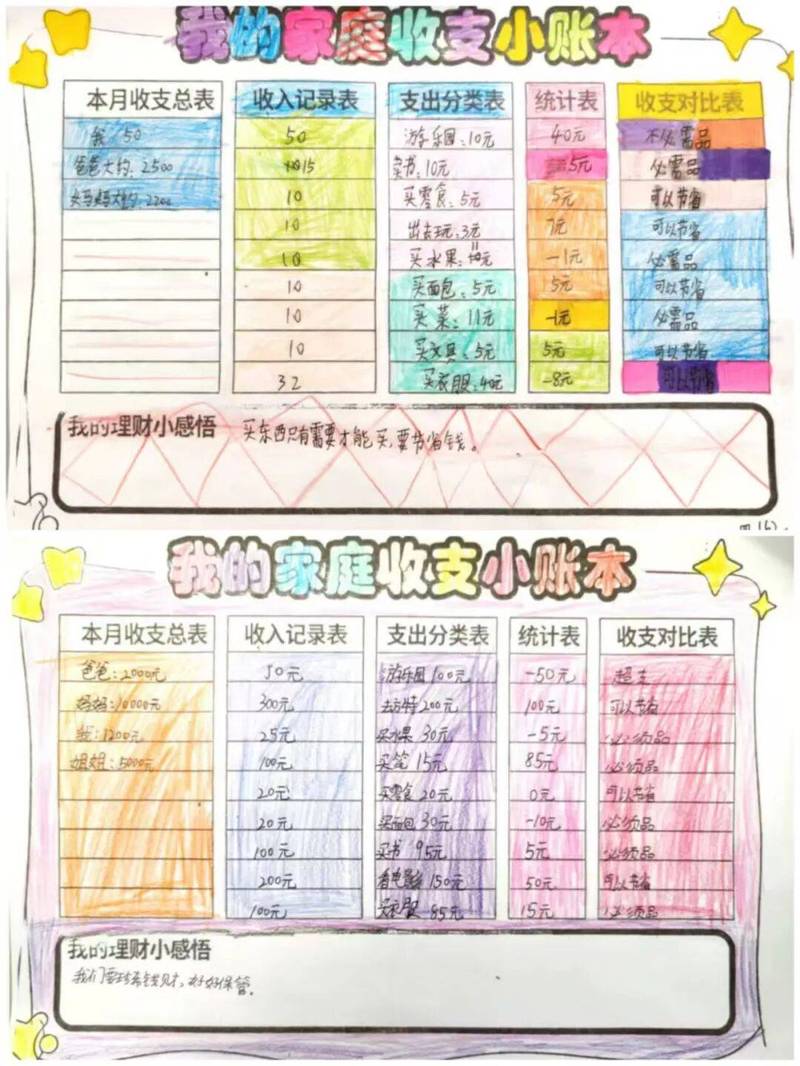 我的家庭收支小账本
本月收支总表 收入记录表 支出分类表 统计表 收支对比表
我 50 50 游乐园:10元 40元 不必需品
爸爸大约:2500 15 卖书:10元 5元 必需品
妈妈大约:2200 10 买零食:5元 5元 可以节省
10 出去玩:3元 7元 可以节省
10 买水果:11元 -1元 必需品
10 买面包:5元 5元 可以节省
10 买菜:11元 -1元 必需品
10 买文具:5元 5元 可以节省
32 买衣服:40元 -8元 可以节省
我的理财小感悟 买东西只有需要才能买,要节省钱。
我的家庭收支小账本
本月收支总表 收入记录表 支出分类表 统计表 收支对比表
爸爸:2000元 50元 游乐园100元 -50元 超支
妈妈:10000元 300元 去方特200元 100元 可以节省
我:1200元 25元 买水果30元 -5元 必须品
姐姐:5000元 100元 买笔15元 85元 必须品
20元 买零食20元 0元 可以节省
20元 买面包30元 -10元 必须品
100元 买书95元 5元 必须品
200元 看电影150元 50元 可以节省
100元 买衣服85元 15元 必须品
我的理财小感悟
我们要珍惜钱财,好好保管。